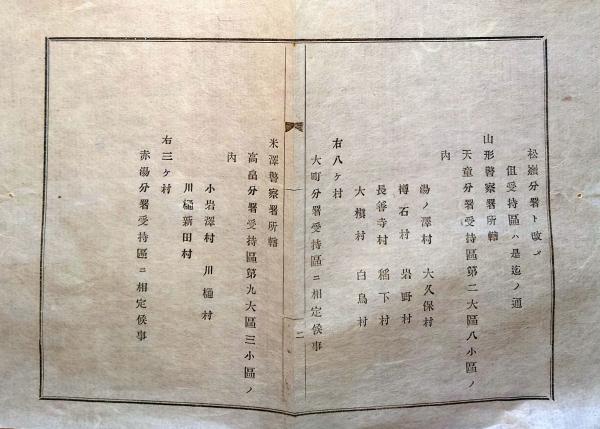 松嶺分署ト改メ
但受持區ハ是迄ノ通
山形警察署所轄
天童分署受持區第二大區八小區ノ
内
湯ノ澤村 大久保村
樽石村 岩野村
長善寺村 稲下村
大槇村 白鳥村
右八ケ村
大町分署受持區ニ相定候事
二
米澤警察署所轄
高畠分署受持區第九大區三小區ノ
内
小岩澤村 川樋村
川樋新田村
右三ケ村
赤湯分署受持區ニ相定候事